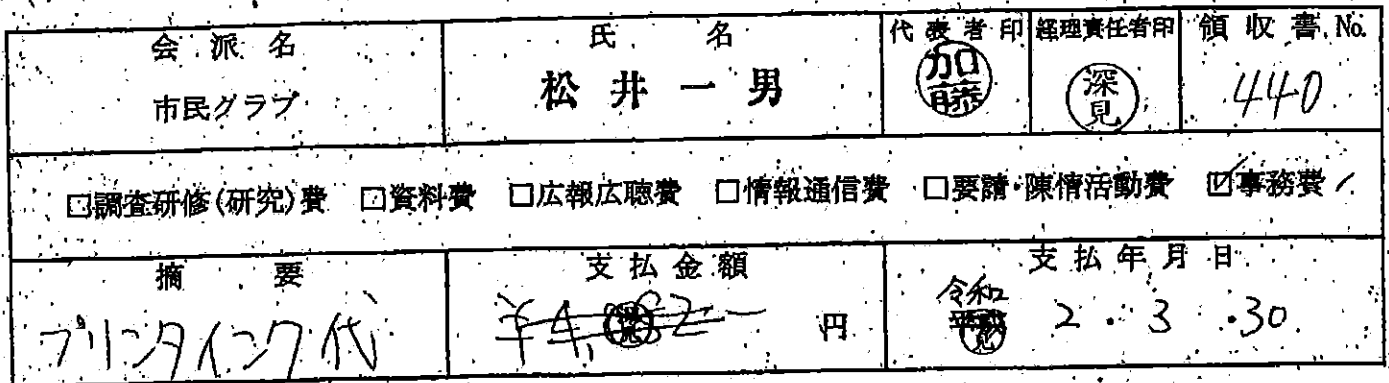 会派名 氏名 代表者印 経理責任者印 領収書No.
市民クラブ 松井一男 加藤 深見 440
□調査研修(研究)費 □資料費 □広報広聴費 □情報通信費 □要請・陳情活動費 ☑事務費
摘要 支払金額 支払年月日
プリンタインク代 円 令和 2・3・30